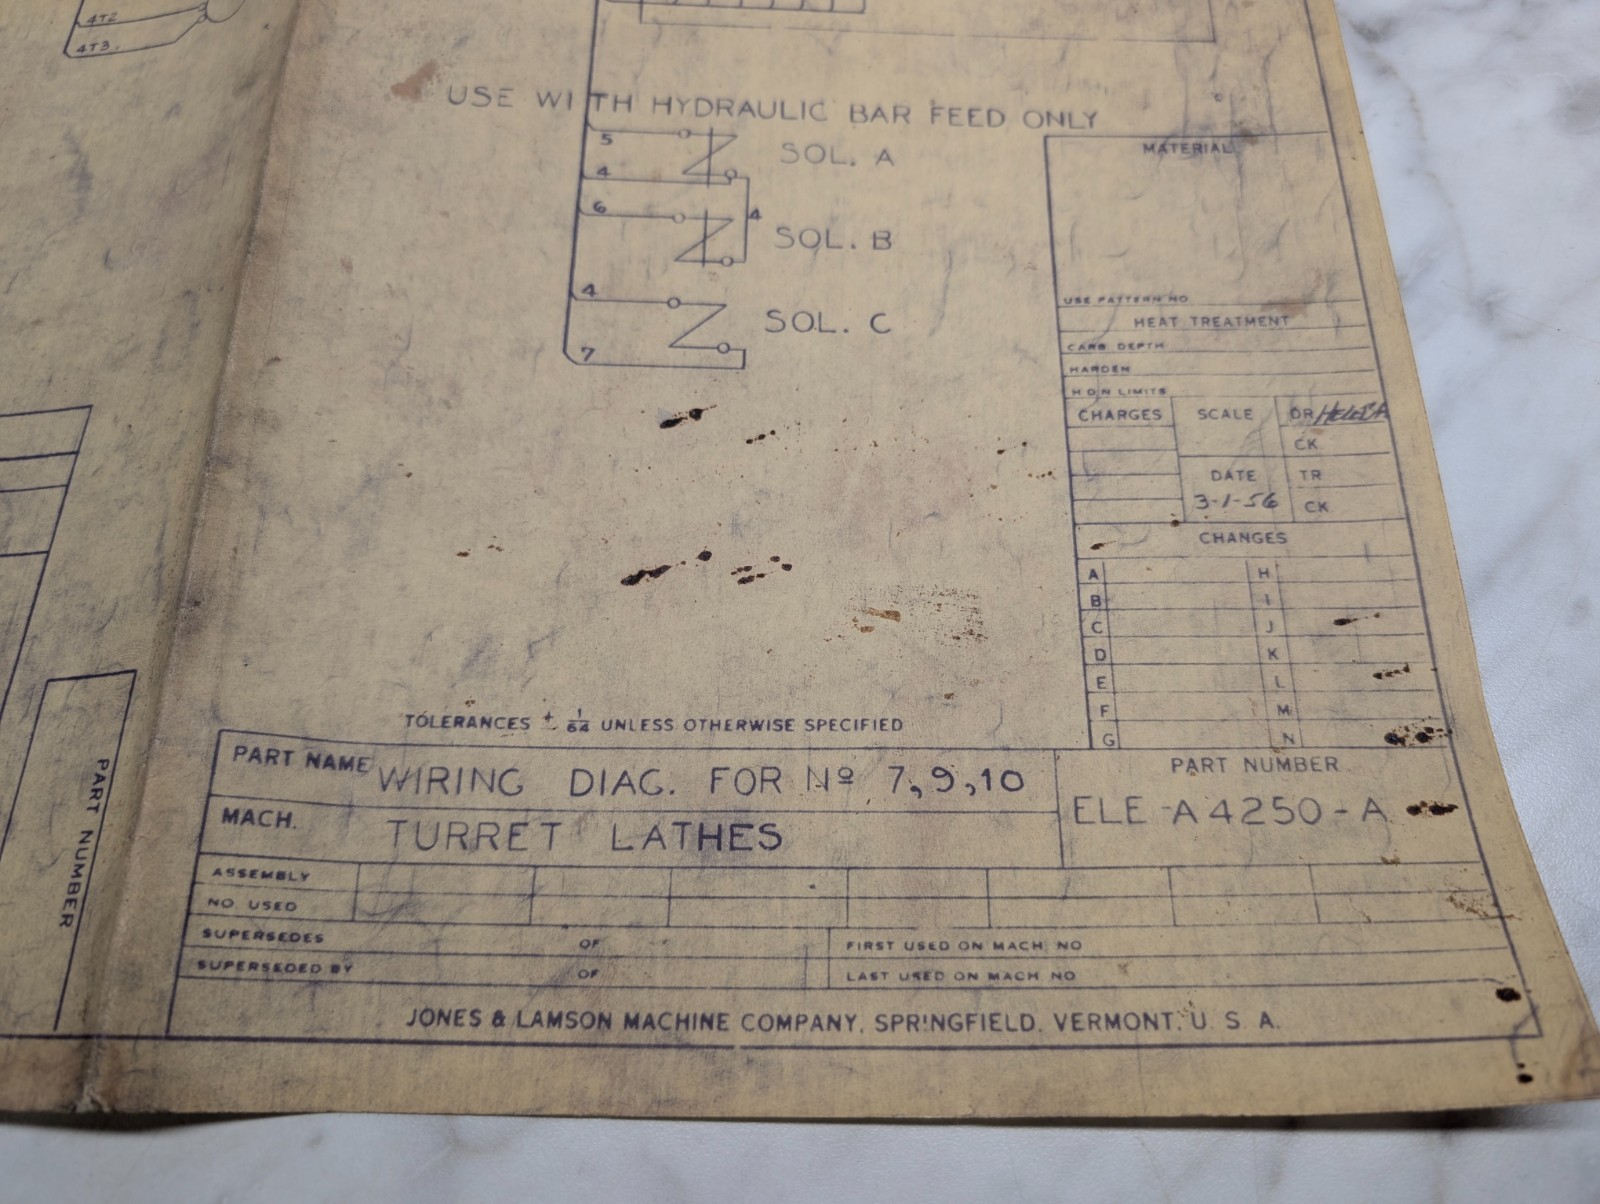 4T2
4T3.
USE WITH HYDRAULIC BAR FEED ONLY
5
SOL. A
4
6
4
SOL. B
4
SOL. C
7
MATERIAL
USE PATTERN NO
HEAT TREATMENT
CARB DEPTH
HARDEN
HDN LIMITS
CHARGES
SCALE
DR
CK
DATE
TR
3-1-56
CK
CHANGES
A H
B I
C J
D K
E L
F M
G N
TOLERANCES ± 1/64 UNLESS OTHERWISE SPECIFIED
PART NAME WIRING DIAG. FOR Nº 7,9,10
MACH. TURRET LATHES
PART NUMBER
ELE A4250-A
ASSEMBLY
NO USED
SUPERSEDES OF
SUPERSEDED BY OF
FIRST USED ON MACH. NO
LAST USED ON MACH NO
JONES & LAMSON MACHINE COMPANY, SPRINGFIELD, VERMONT, U. S. A.
PART NUMBER